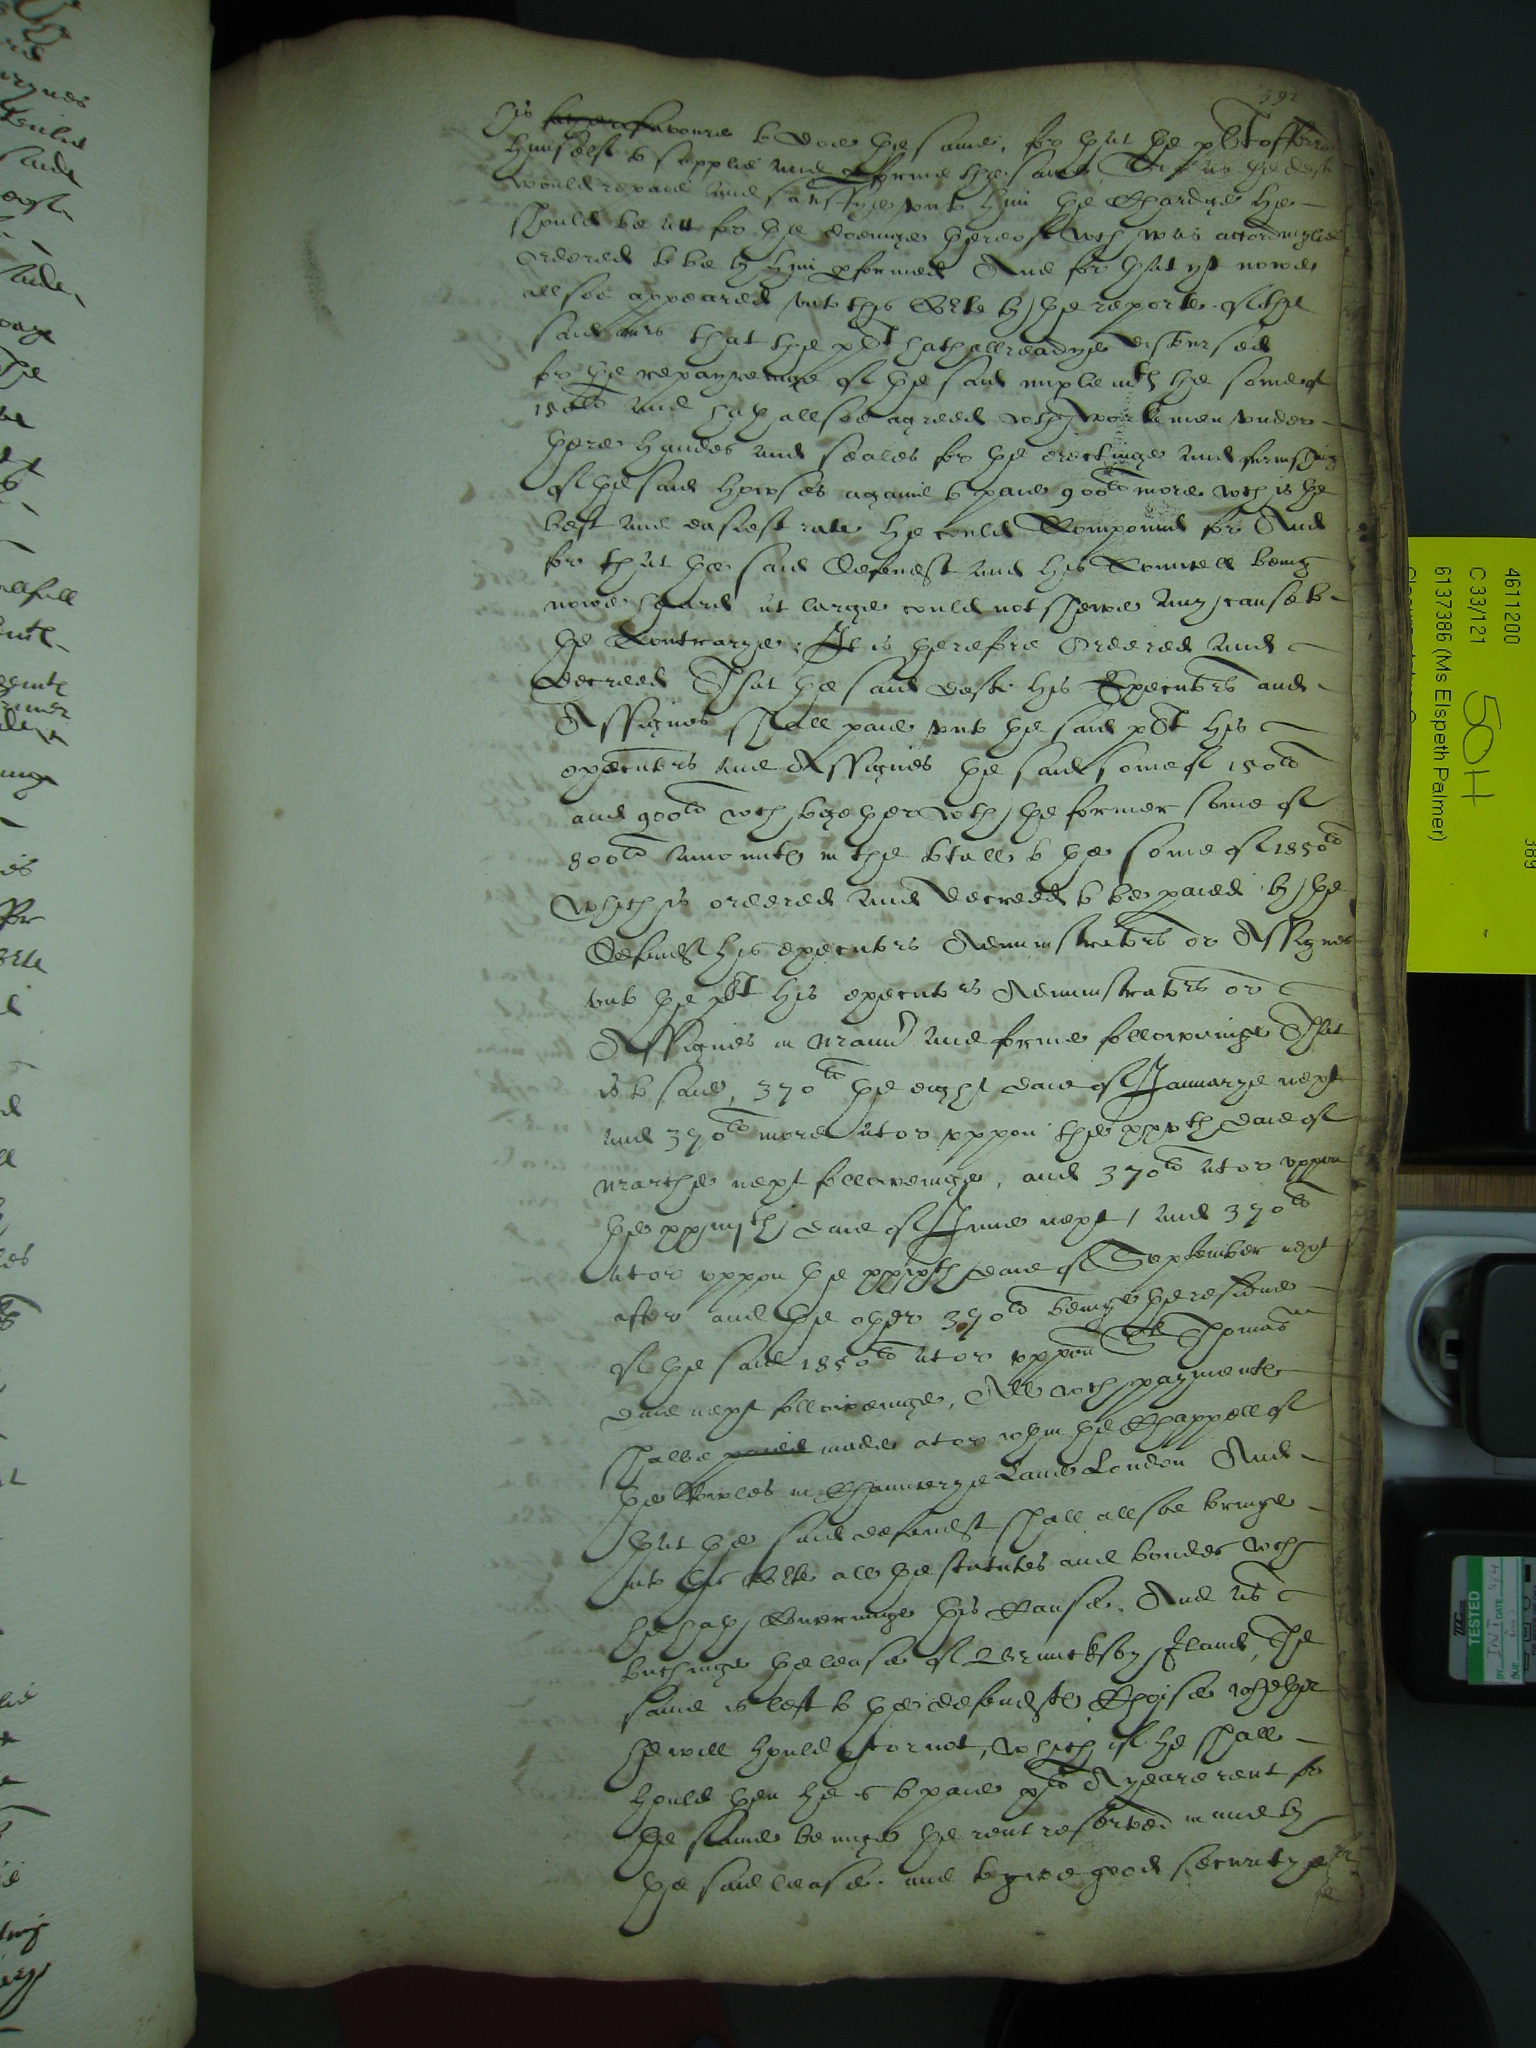 592
his favoure to doe the same, for that the plt offered
himself to supplie and pforme the same, Soe as the deft
would repaie and satisfye unto him the Chardge he
should be att for the doeinge thereof wch was accordinglie
ordered to be by him pformed And for that yt nowe
allsoe appeared unto this Corte by the reporte of the
said that the plt hath allreadye disbursed
for the repayreinge of the said implemts the some of
150li and hath allsoe agreed with workemen under
there handes and seales for the erectinge and furnishing
of the said howses againe to paie 900li more wch is the
best and easiest rate he could Compound for And
for that the said Defendt and his Councell being
nowe heard at large could not shewe any cause to
the Contrarye, It is therefore Ordered and
decreed That the said deft his Executors and
Assignes shall paie unto the said plt his
executors and Assignes the said some of 150li
and 900li wch together with the former some of
800li amounteth in the totall to the some of 1850li
Which is ordered and decreed to be paied by the
Defendt his executors Administrators or Assignes
unto the plt his executors Administrators or
Assignes in Mannr and forme followeinge That
is to saie, 370li the eight daie of Januarye next
and 370li more at or uppon the xxvth daie of
Marche next followeinge, and 370li at or uppon
the xxiiijth daie of June next, and 370li
at or uppon the xxixth daie of September next
after and the other 370li beinge the residue
of the said 1850li at or uppon St Thomas
daie next followeinge, All wch paymente
shalbe paied made at or within the Chappell of
the Rowles in Chauncerye Lane London And
that the said defendt shall allsoe bringe
into this Corte all the statutes and bondes wch
he hath Concerninge this Cause, And as
tuchinge the lease of Bruncksey Iland, The
same is left to the defendts Choise whether
he will hould yt or not, which if he shall
hould then he is to paie A yeare rent for
the same beinge the rent reserved in and by
the said lease, and to give good securitye
4611200
C 33/121
6137386 (Ms Elspeth Palmer)
50H
389
TESTED